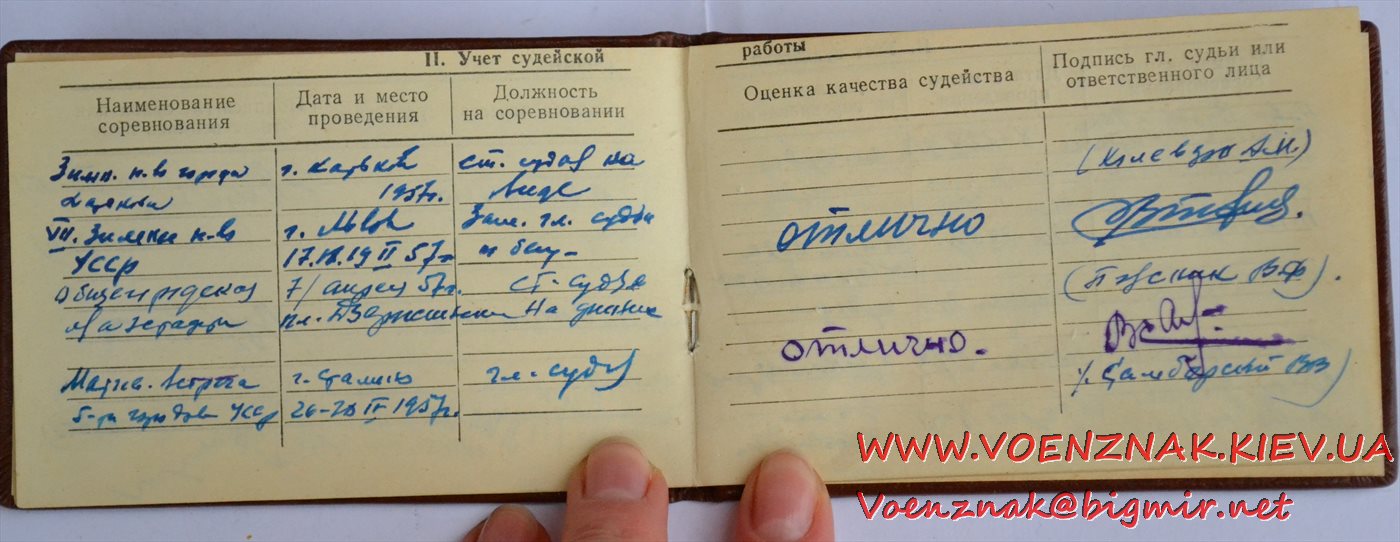 II. Учет судейской работы
Наименование соревнования
Дата и место проведения
Должность на соревновании
Оценка качества судейства
Подпись гл. судьи или ответственного лица
Зимн. п-во города
г. Харьков
ст. судья на
1957г.
виде
VII. Зимнее п-во
г. Львов
Зам. гл. судьи
УССР
17.18.19 II 57г.
отлично
7/апреля 57г.
ст. судья
пл. Дзержинского
на
отлично.
Матчев. встреча
г. Сталино
гл. судья
5-ти городов УССР
26-28 IV 1957г.
WWW.VOENZNAK.KIEV.UA
Voenznak@bigmir.net